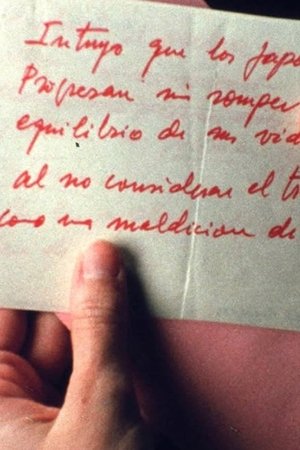 Intuyo que los japo
Progresan sin romper
equilibrio de sus vid
al no considerar el t
como una maldicion de